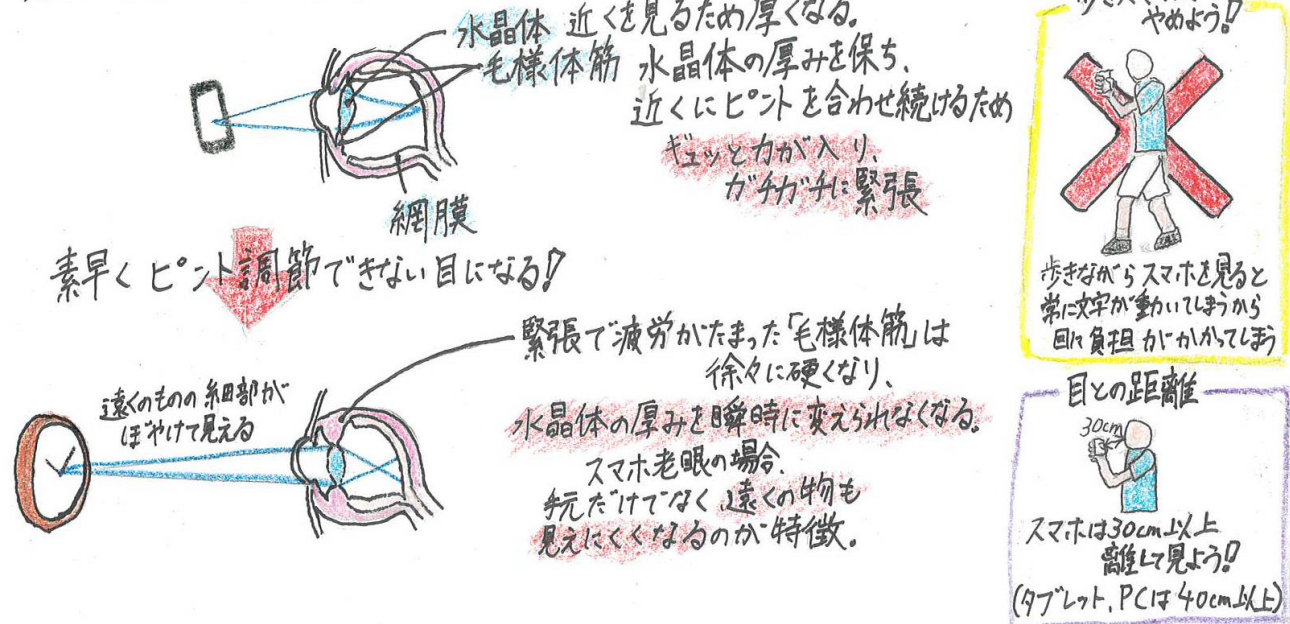 水晶体 近くを見るため厚くなる。
毛様体筋 水晶体の厚みを保ち、
近くにピントを合わせ続けるため
ギュッと力が入り、
ガチガチに緊張
網膜
素早くピント調節できない目になる!!
緊張で疲労がたまった「毛様体筋」は
徐々に硬くなり、
水晶体の厚みを瞬時に変えられなくなる。
スマホ老眼の場合、
手元だけでなく遠くの物も
見えにくくなるのが特徴。
遠くのものの細部が
ぼやけて見える
やめよう!!
歩きながらスマホを見ると
常に文字が動いてしまうから
目に負担がかかってしまう
目との距離
30cm
スマホは30cm以上
離して見よう!!
(タブレット,PCは40cm以上)